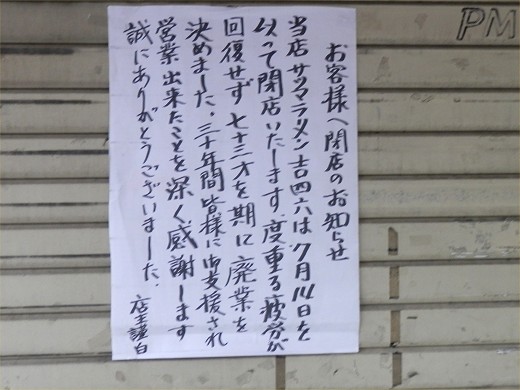 お客様へ閉店のお知らせ
当店サツマラーメン吉四六は7月14日を
以って閉店いたします。度重る疲労が
回復せず七十三才を期に廃業を
決めました。三十年間皆様に御支援され
営業出来たことを深く感謝します
誠にありがとうございました。
店主謹白
PM